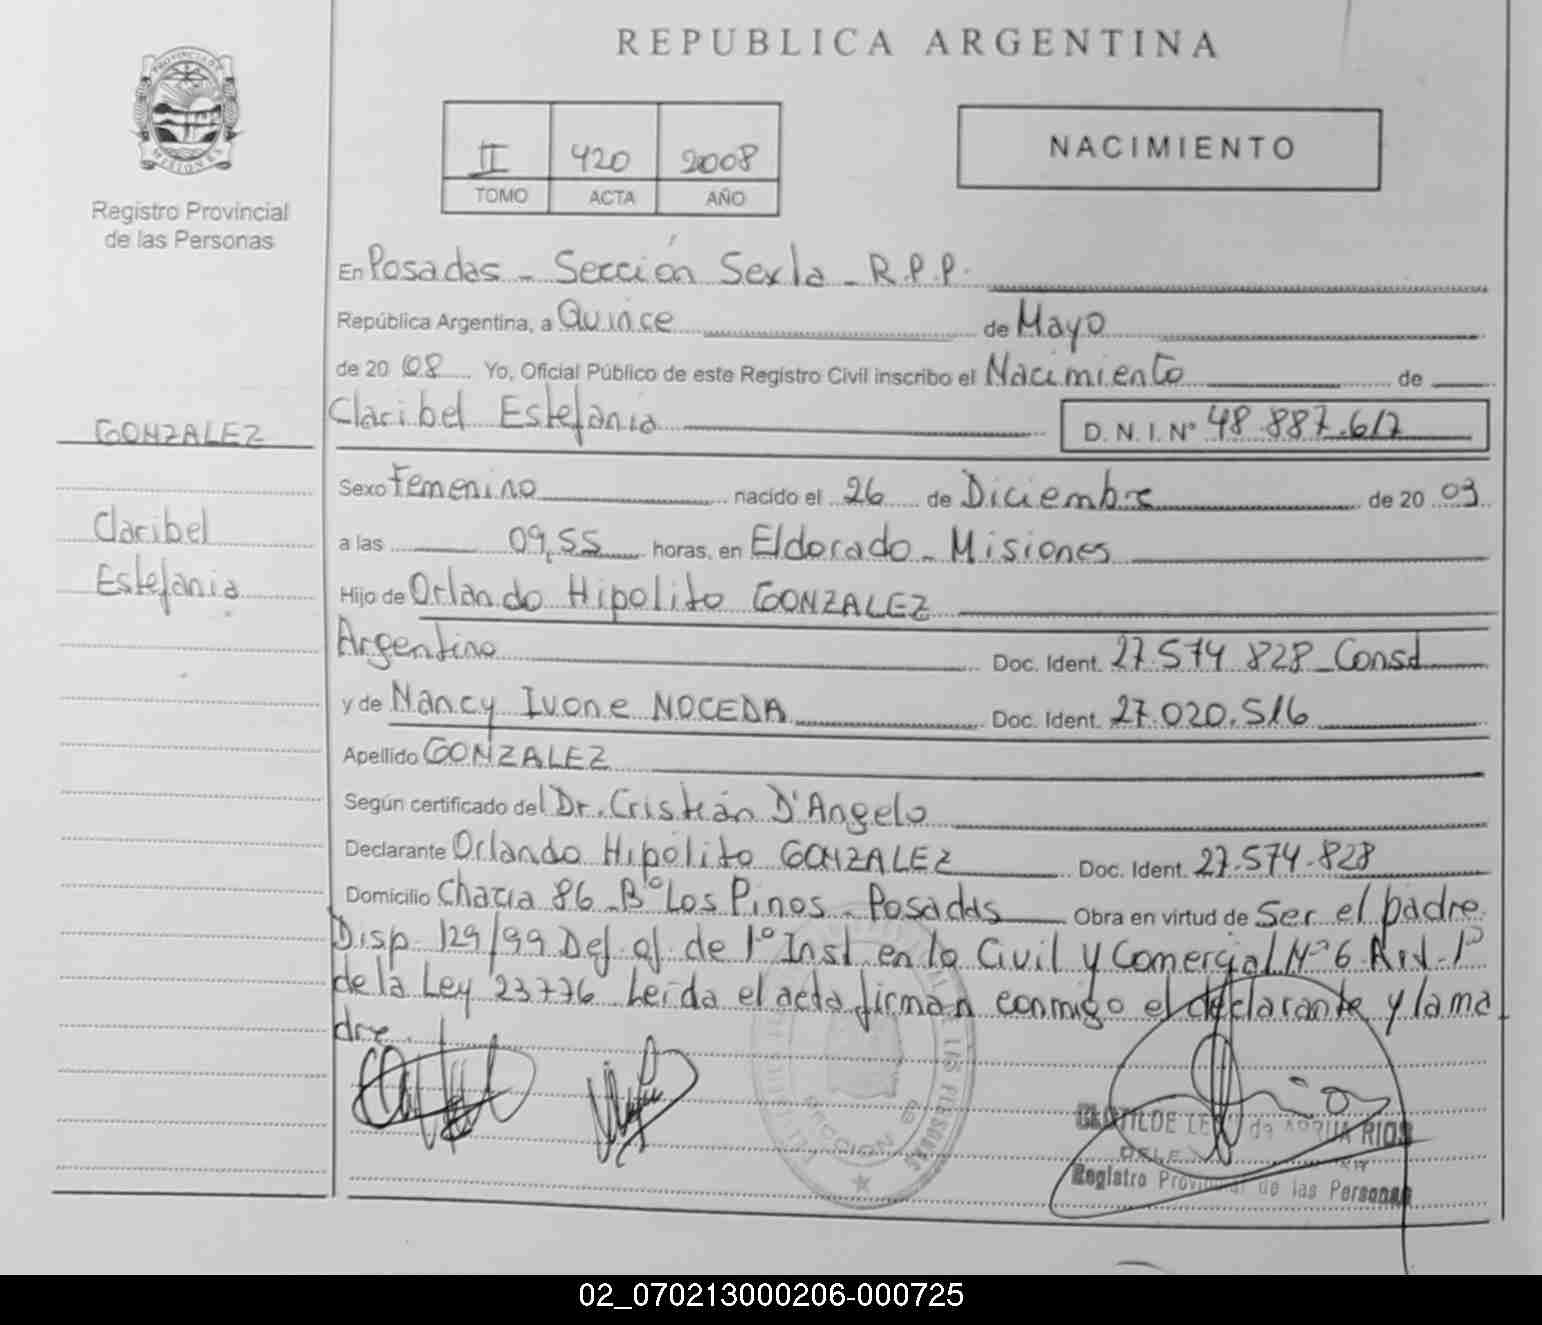 REPUBLICA ARGENTINA
PROVINCIA DE MISIONES
Registro Provincial
de las Personas
II 420 2008
TOMO ACTA AÑO
NACIMIENTO
En Posadas - Sección Sexta - R.P.P.
República Argentina, a Quince de Mayo
de 20 08 Yo, Oficial Público de este Registro Civil inscribo el Nacimiento de
Claribel Estefania D.N.I.Nº 48.887.617
GONZALEZ
Claribel
Estefania
Sexo Femenino nacido el 26 de Diciembre de 20 03
a las 09,55 horas, en Eldorado - Misiones
Hijo de Orlando Hipolito GONZALEZ
Argentino Doc. Ident. 27.574.828 Consd
y de Nancy Ivone NOCEDA Doc. Ident. 27.020.516
Apellido GONZALEZ
Según certificado del Dr. Cristián D'Angelo
Declarante Orlando Hipólito GONZALEZ Doc. Ident. 27.574.828
Domicilio Chacra 86 - Bº Los Pinos - Posadas Obra en virtud de Ser el padre
Disp. 129/99 Def. of. de 1º Inst en lo Civil y Comercial Nº 6 Art. 1º
de la Ley 23776 Leida el acta firman conmigo el declarante y la ma
dre.
DE LAS PERSONAS
SECCION 6ª
CLOTILDE de ARRUA RIOS
Registro Provincial de las Personas
02_070213000206-000725